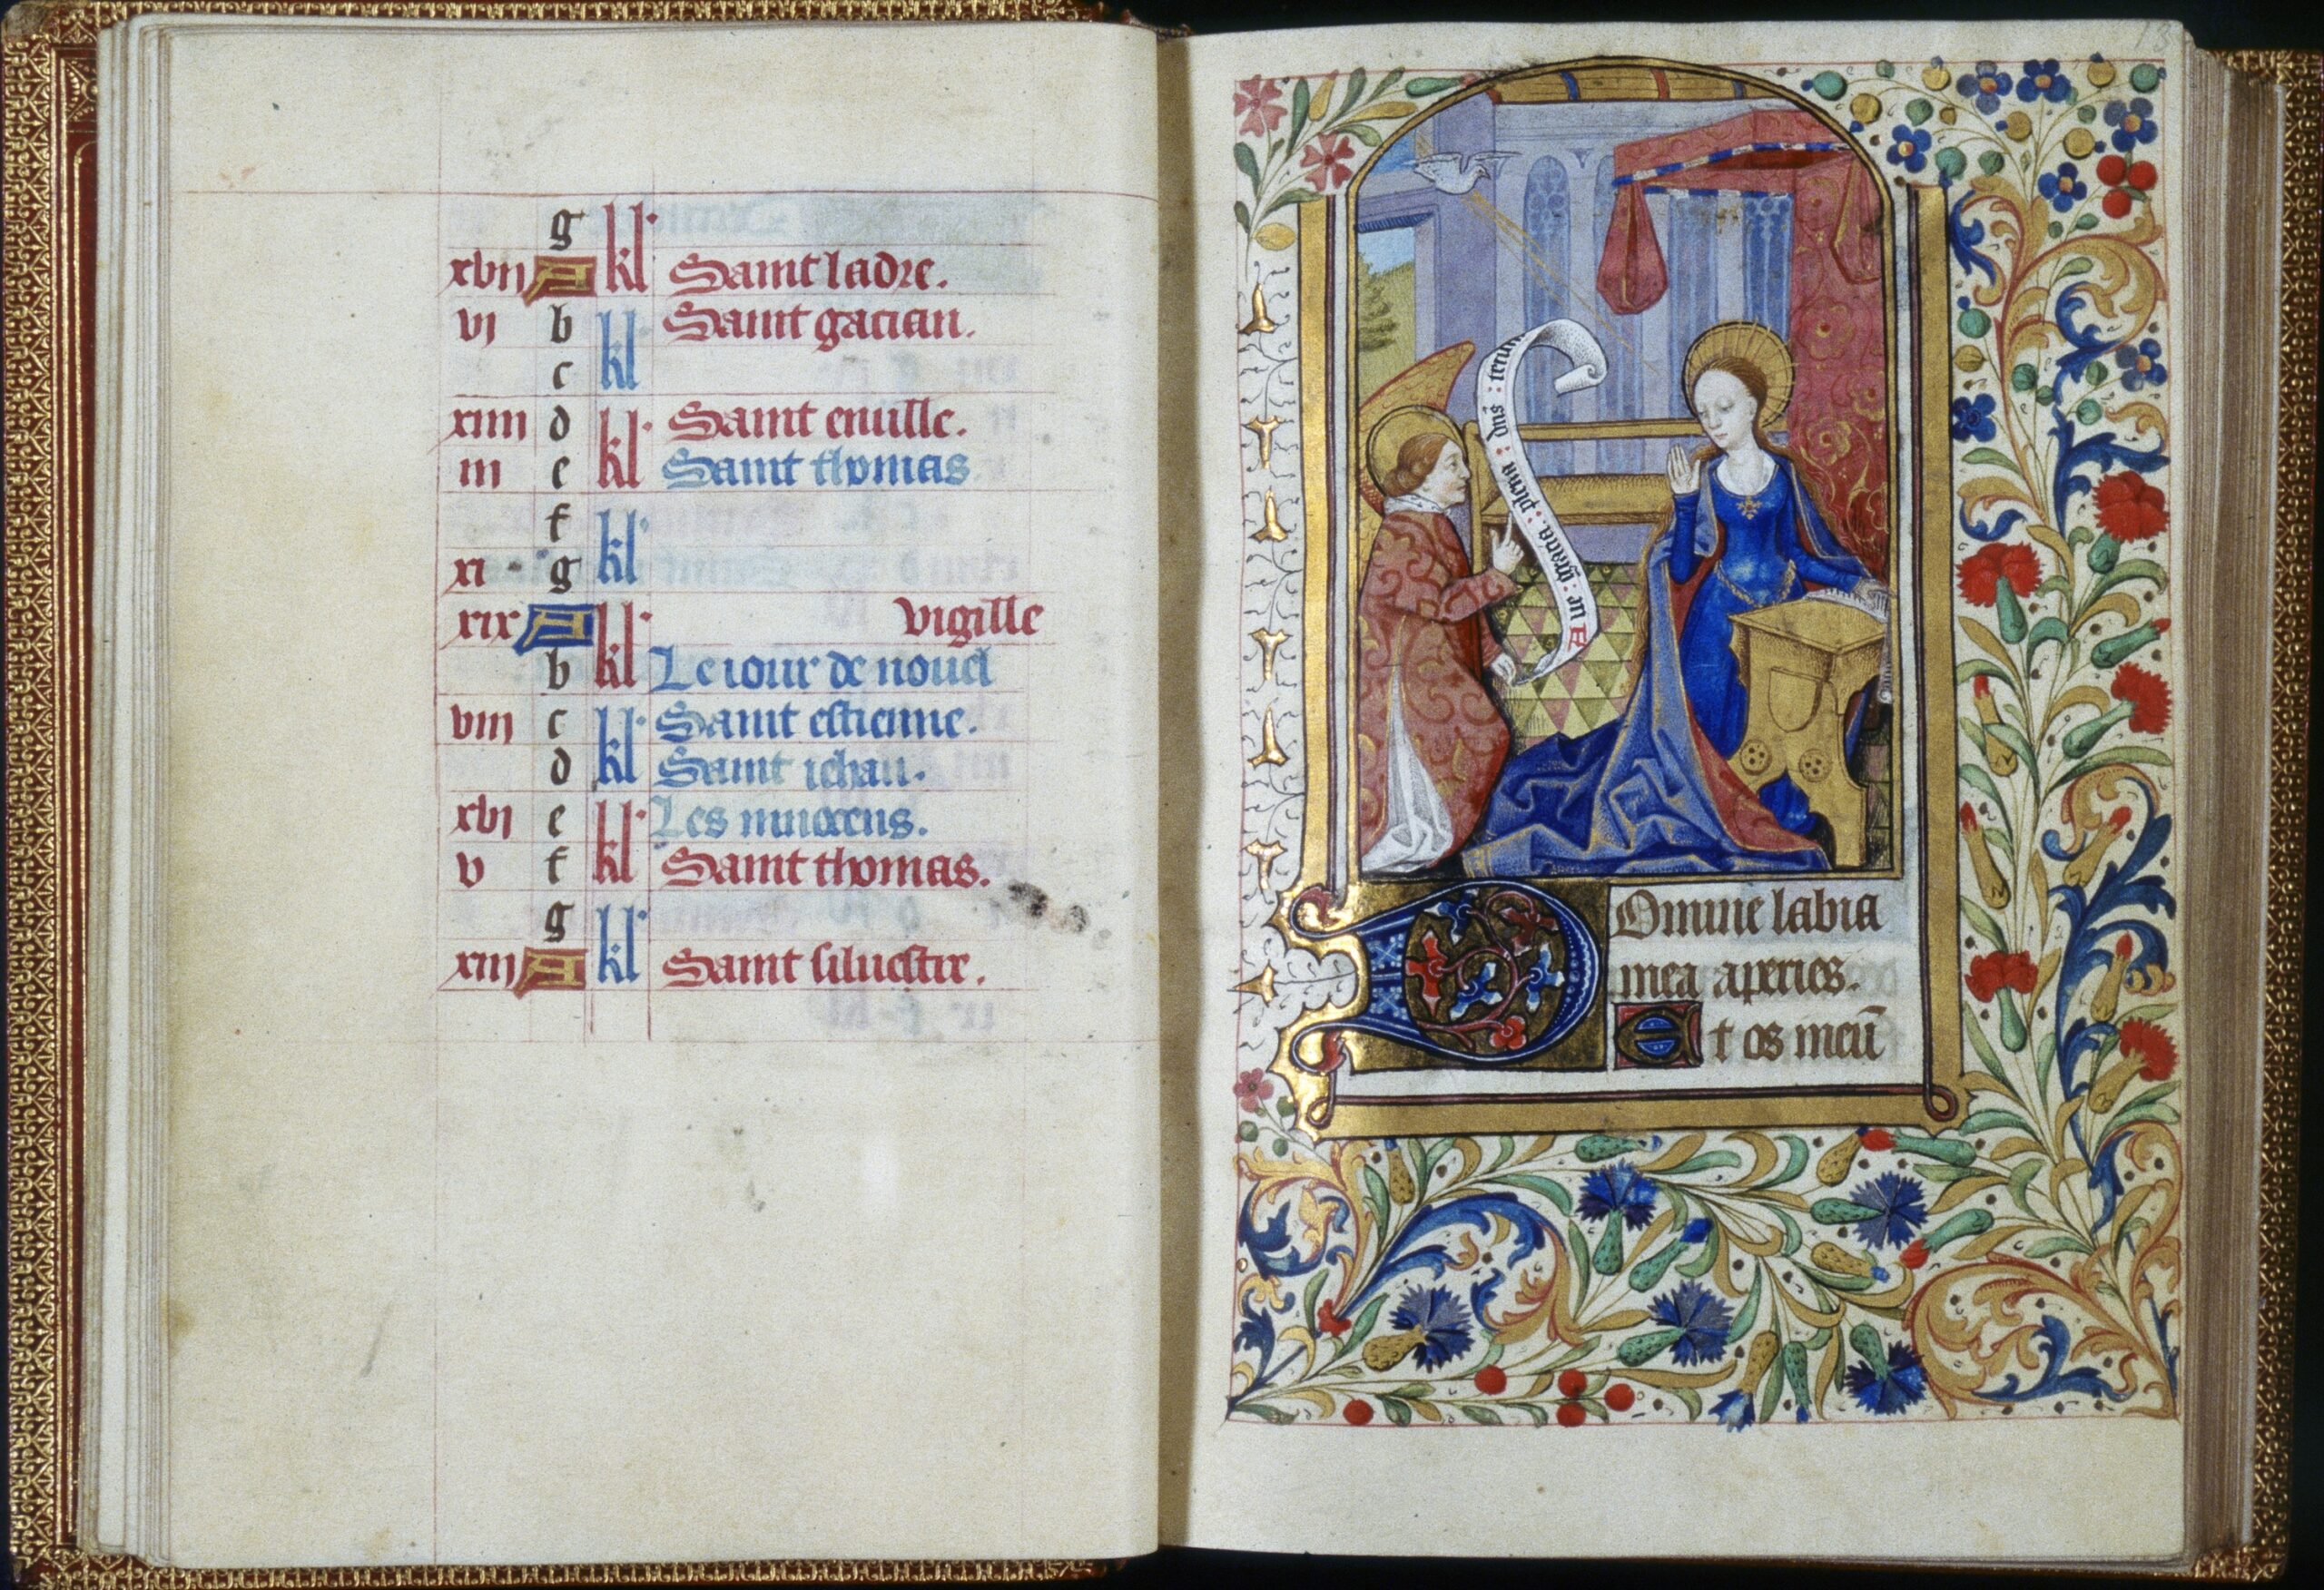 g
xvii A kl Saint ladre.
vi b kl Saint gacian.
c
xiiii d kl Saint cuille.
iii e Saint thomas
f kl
xi g
xix A kl vigille
b Le iour de nouel
viii c kl Saint estienne.
d Saint iehan.
xvi e kl Les innocens.
v f Saint thomas.
g kl
xiii A Saint siluestre.
13
Aue : gracia : plena : dns : tecum
Domine labia
mea aperies.
Et os meū